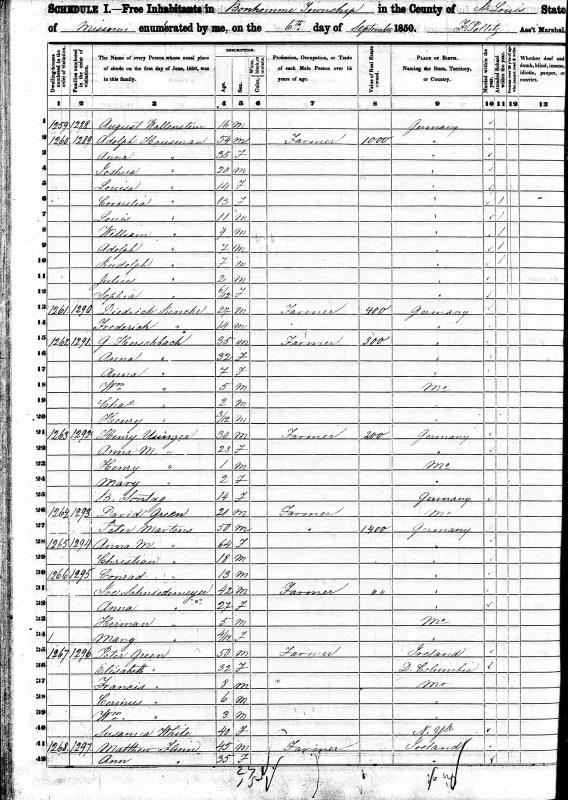 SCHEDULE I.—Free Inhabitants in Bonhomme Township in the County of St Louis State
of Missouri enumerated by me, on the 6th day of September 1850. Ass't Marshal.
The Name of every Person whose usual place of abode on the first day of June, 1850, was in this family.
DESCRIPTION.
Age
Sex
Profession, Occupation, or Trade of each Male Person over 15 years of age.
Value of Real Estate owned
PLACE OF BIRTH.
Naming the State, Territory, or Country.
Married within the year.
Whether deaf and dumb, blind, insane, idiotic, pauper, or convict.
1 2 3 4 5 6 7 8 9 10 11 12 13
1 1259 1288 August Wallenstein 16 M Germany
2 1260 1289 Adolph Hausman 54 M Farmer 1000 "
3 Anna " 35 F "
4 Joshua " 20 M "
5 Louisa " 14 F "
6 Cornelia " 13 F " 1
7 Louis " 11 M " 1
8 William " 9 M " 1
9 Adolph " 7 M " 1
10 Rudolph " 7 M "
11 Julius " 2 M "
12 Sophia " 6/12 F "
13 1261 1290 Diedrick 27 M Farmer 400 Germany
14 Frederich " 14 M "
15 1262 1291 G. Herschbach 35 M Farmer 500 "
16 Anna " 32 F "
17 Anna " 7 F "
18 Wm " 5 M Mo
19 Chas " 2 M "
20 Henry " 3/12 M "
21 1263 1292 Henry 30 M Farmer 200 Germany
22 Anna M. " 23 F "
23 Henry " 1 M Mo
24 Mary " 2 F "
25 B. Sontag 14 F Germany
26 1264 1293 David Green 21 M Farmer Mo
27 Peter Martins 50 M " 1400 Germany
28 1265 1294 Anna M. " 64 F "
29 Christian " 18 M "
30 1266 1295 Conrad " 13 M "
31 Schniedermeyer 42 M Farmer " "
32 Anna " 27 F "
33 Herman " 5 M Mo
34 Mary " 4/12 F "
35 1267 1296 Peter Green 50 M Farmer Ireland
36 Elisabeth " 32 F D. Columbia
37 Francis " 8 M Mo
38 " 6 M "
39 Wm. " 3 M "
40 Susanna White 40 F N. Yk
41 1268 1297 Matthew 45 M Farmer Ireland
42 Ann " 35 F "